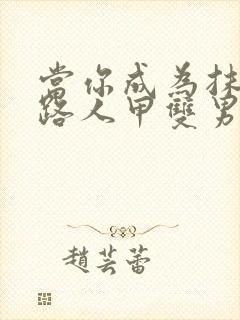 當你成為抹
路人甲雙男
趙芸蕾